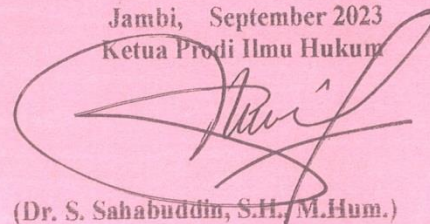 Jambi, September 2023
Ketua Prodi Ilmu Hukum
(Dr. S. Sahabuddin, S.H., M.Hum.)